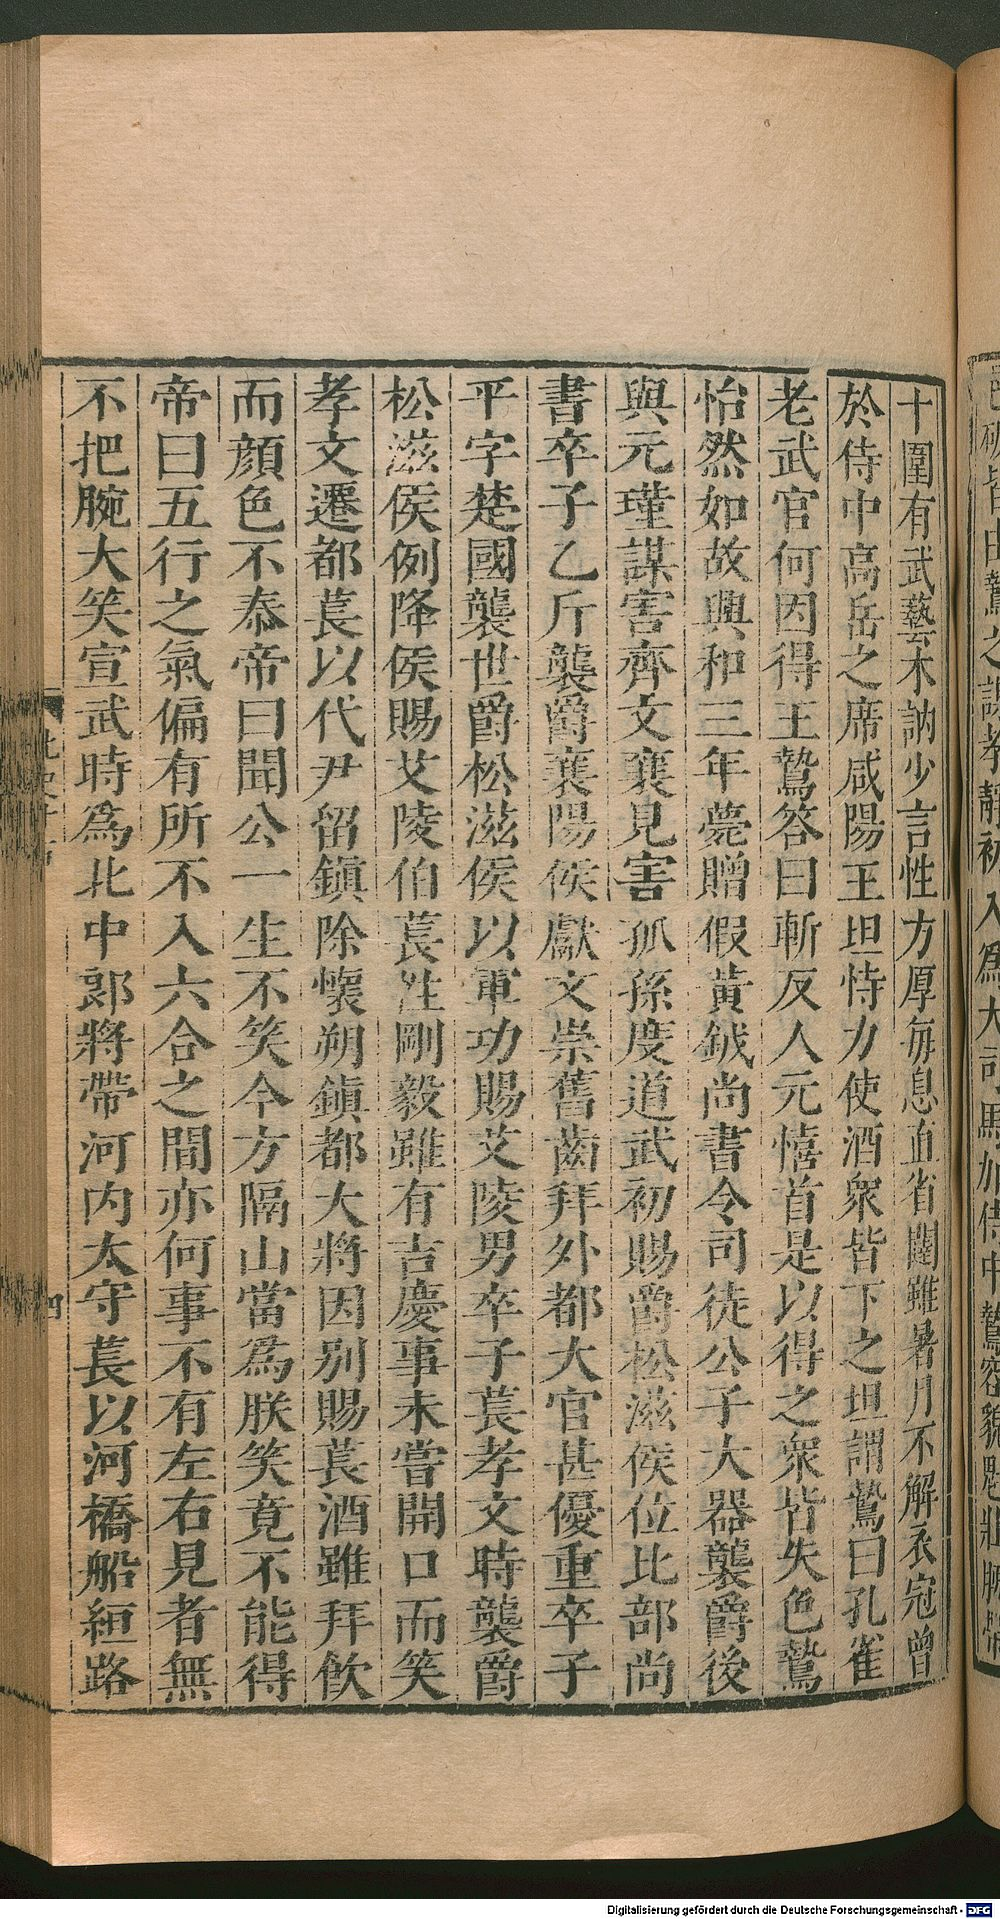 十圍有武藝木訥少言性方厚每息直省闥雖暑月不解衣冠曾
於侍中高岳之席咸陽王坦恃力使酒衆皆下之坦謂鷙曰孔雀
老武官何因得王鷙答曰斬反人元愉首是以得之衆皆失色鷙
怡然如故興和三年薨贈假黃鉞尚書令司徒公子大器襲爵後
與元瑾謀害齊文襄見害孤孫度道武初賜爵松滋侯位比部尚
書卒子乙斤襲爵襄陽侯獻文崇舊齒拜外都大官甚優重卒子
平字楚國襲世爵松滋侯以軍功賜艾陵男卒子萇孝文時襲爵
松滋侯例降侯賜艾陵伯萇性剛毅雖有吉慶事未嘗開口而笑
孝文遷都萇以代尹留鎮除懷朔鎮都大將因別賜萇酒雖拜飲
而顏色不泰帝曰聞公一生不笑今方隔山當爲朕笑竟不能得
帝曰五行之氣偏有所不入六合之間亦何事不有左右見者無
不把腕大笑宣武時爲北中郎將帶河內太守萇以河橋船絙路
四
Digitalisierung gefördert durch die Deutsche Forschungsgemeinschaft - DFG